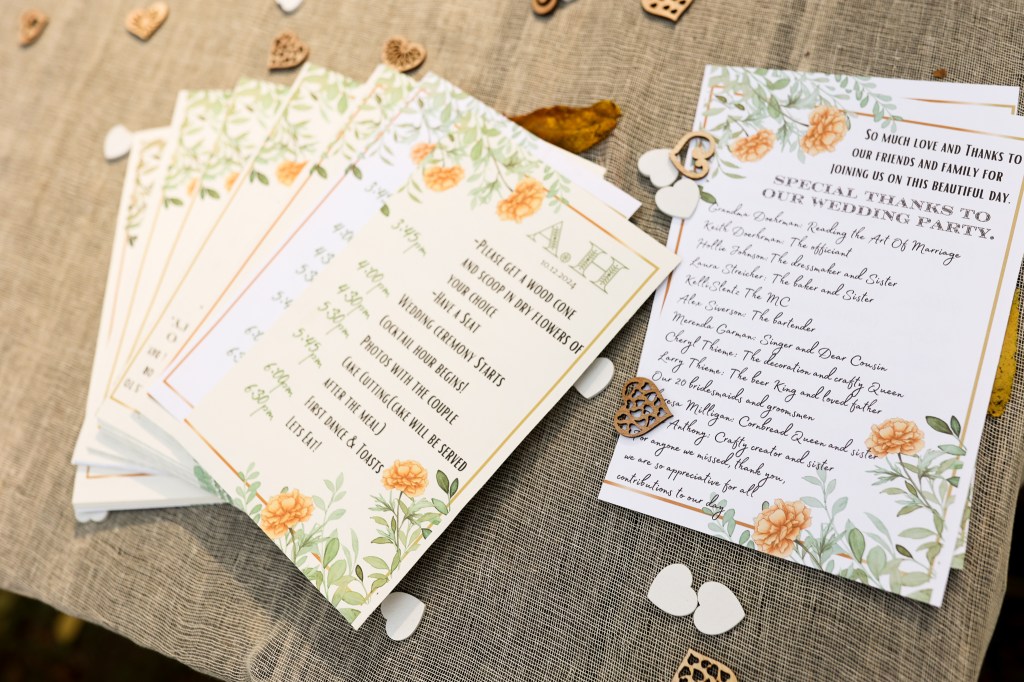 A.H
10.12.2024
3:45pm
-Please get a wood cone
and scoop in dry flowers of
your choice
-Have a Seat
4:00pm
Wedding ceremony Starts
4:30pm
Cocktail hour begins!
5:30pm
Photos with the couple
5:45pm
Cake Cutting(Cake will be served
after the meal)
First dance & Toasts
6:30pm
Lets Eat!
3:45
So much love and Thanks to
our friends and family for
joining us on this beautiful day.
Special Thanks to
our wedding party.
Grandma Doehrman: Reading the Art Of Marriage
Keith Doehrman: The officiant
Hollie Johnson: The dressmaker and Sister
Laura Streicher: The baker and Sister
The MC
Alan Siverson: The bartender
Merenda Garman: Singer and Dear Cousin
Cheryl Thieme: The decoration and crafty Queen
Larry Thieme: The beer King and loved father
Our 20 bridesmaids and groomsmen
Milligan: Cornbread Queen and sister
Anthony: Crafty creator and sister
For anyone we missed, thank you,
we are so appreciative for all
contributions to our day